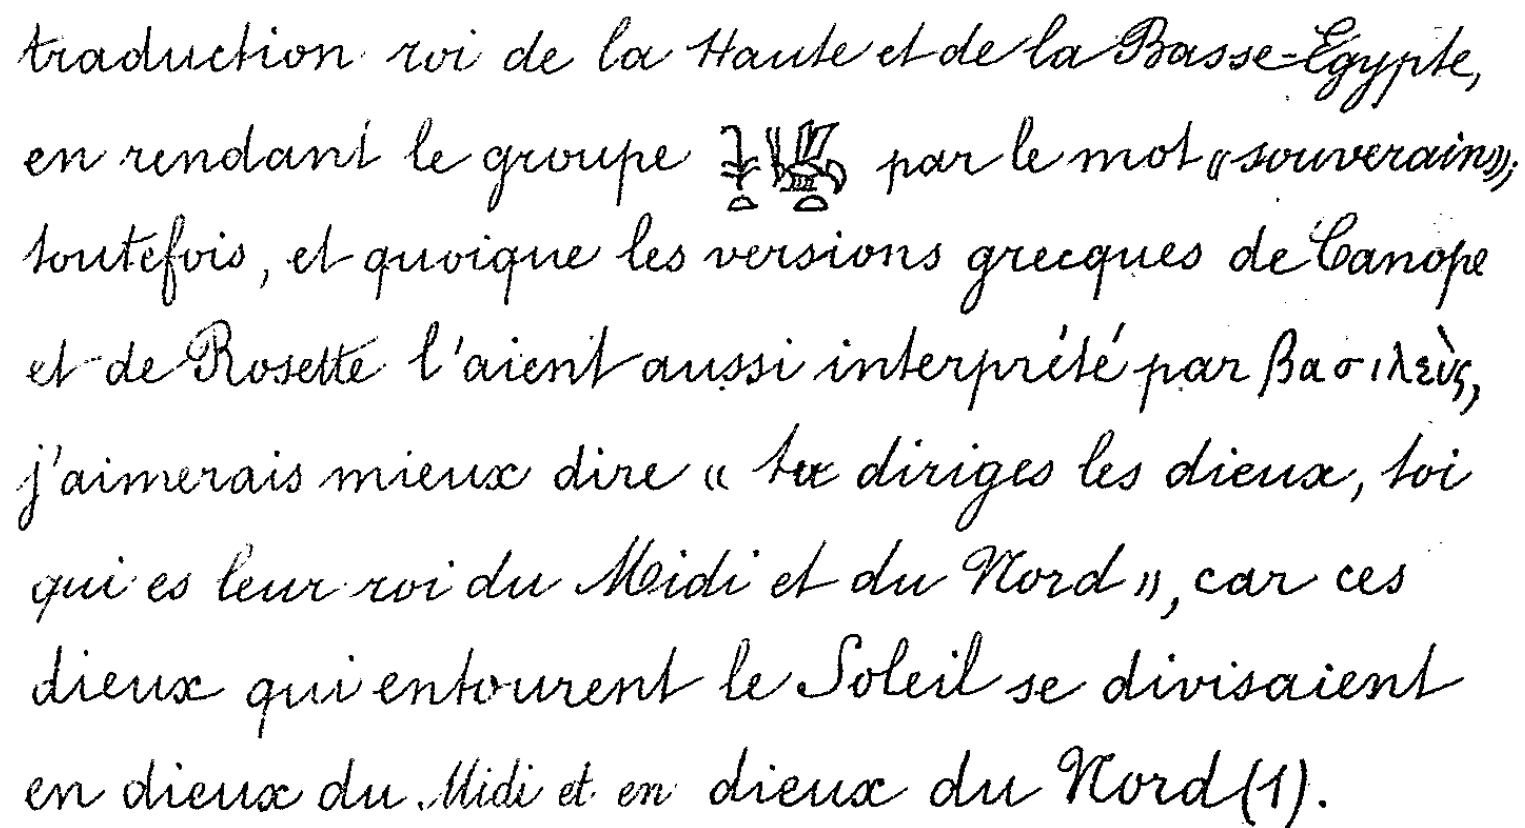 traduction roi de la Haute et de la Basse-Égypte,
en rendant le groupe 𓇓𓏏𓆤𓏏 par le mot «souverain»;
toutefois, et quoique les versions grecques de Canope
et de Rosette l'aient aussi interprété par βασιλεὺς,
j'aimerais mieux dire « tu diriges les dieux, toi
qui es leur roi du Midi et du Nord », car ces
dieux qui entourent le Soleil se divisaient
en dieux du Midi et en dieux du Nord (1).